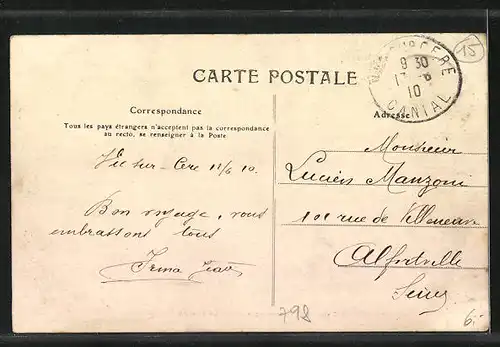 15
VIC-SUR-CERE
9 30
17 -6
10
CANTAL
CARTE POSTALE
Correspondance
Adresse
Tous les pays étrangers n'acceptent pas la correspondance
au recto, se renseigner à la Poste.
Vic sur Cere 17/6 10.
Bon voyage, vous
embrassons tous
Irma
Monsieur
Lucien Manzoni
101 rue de Villeneuve
Alfortville
Seine
798
6.-